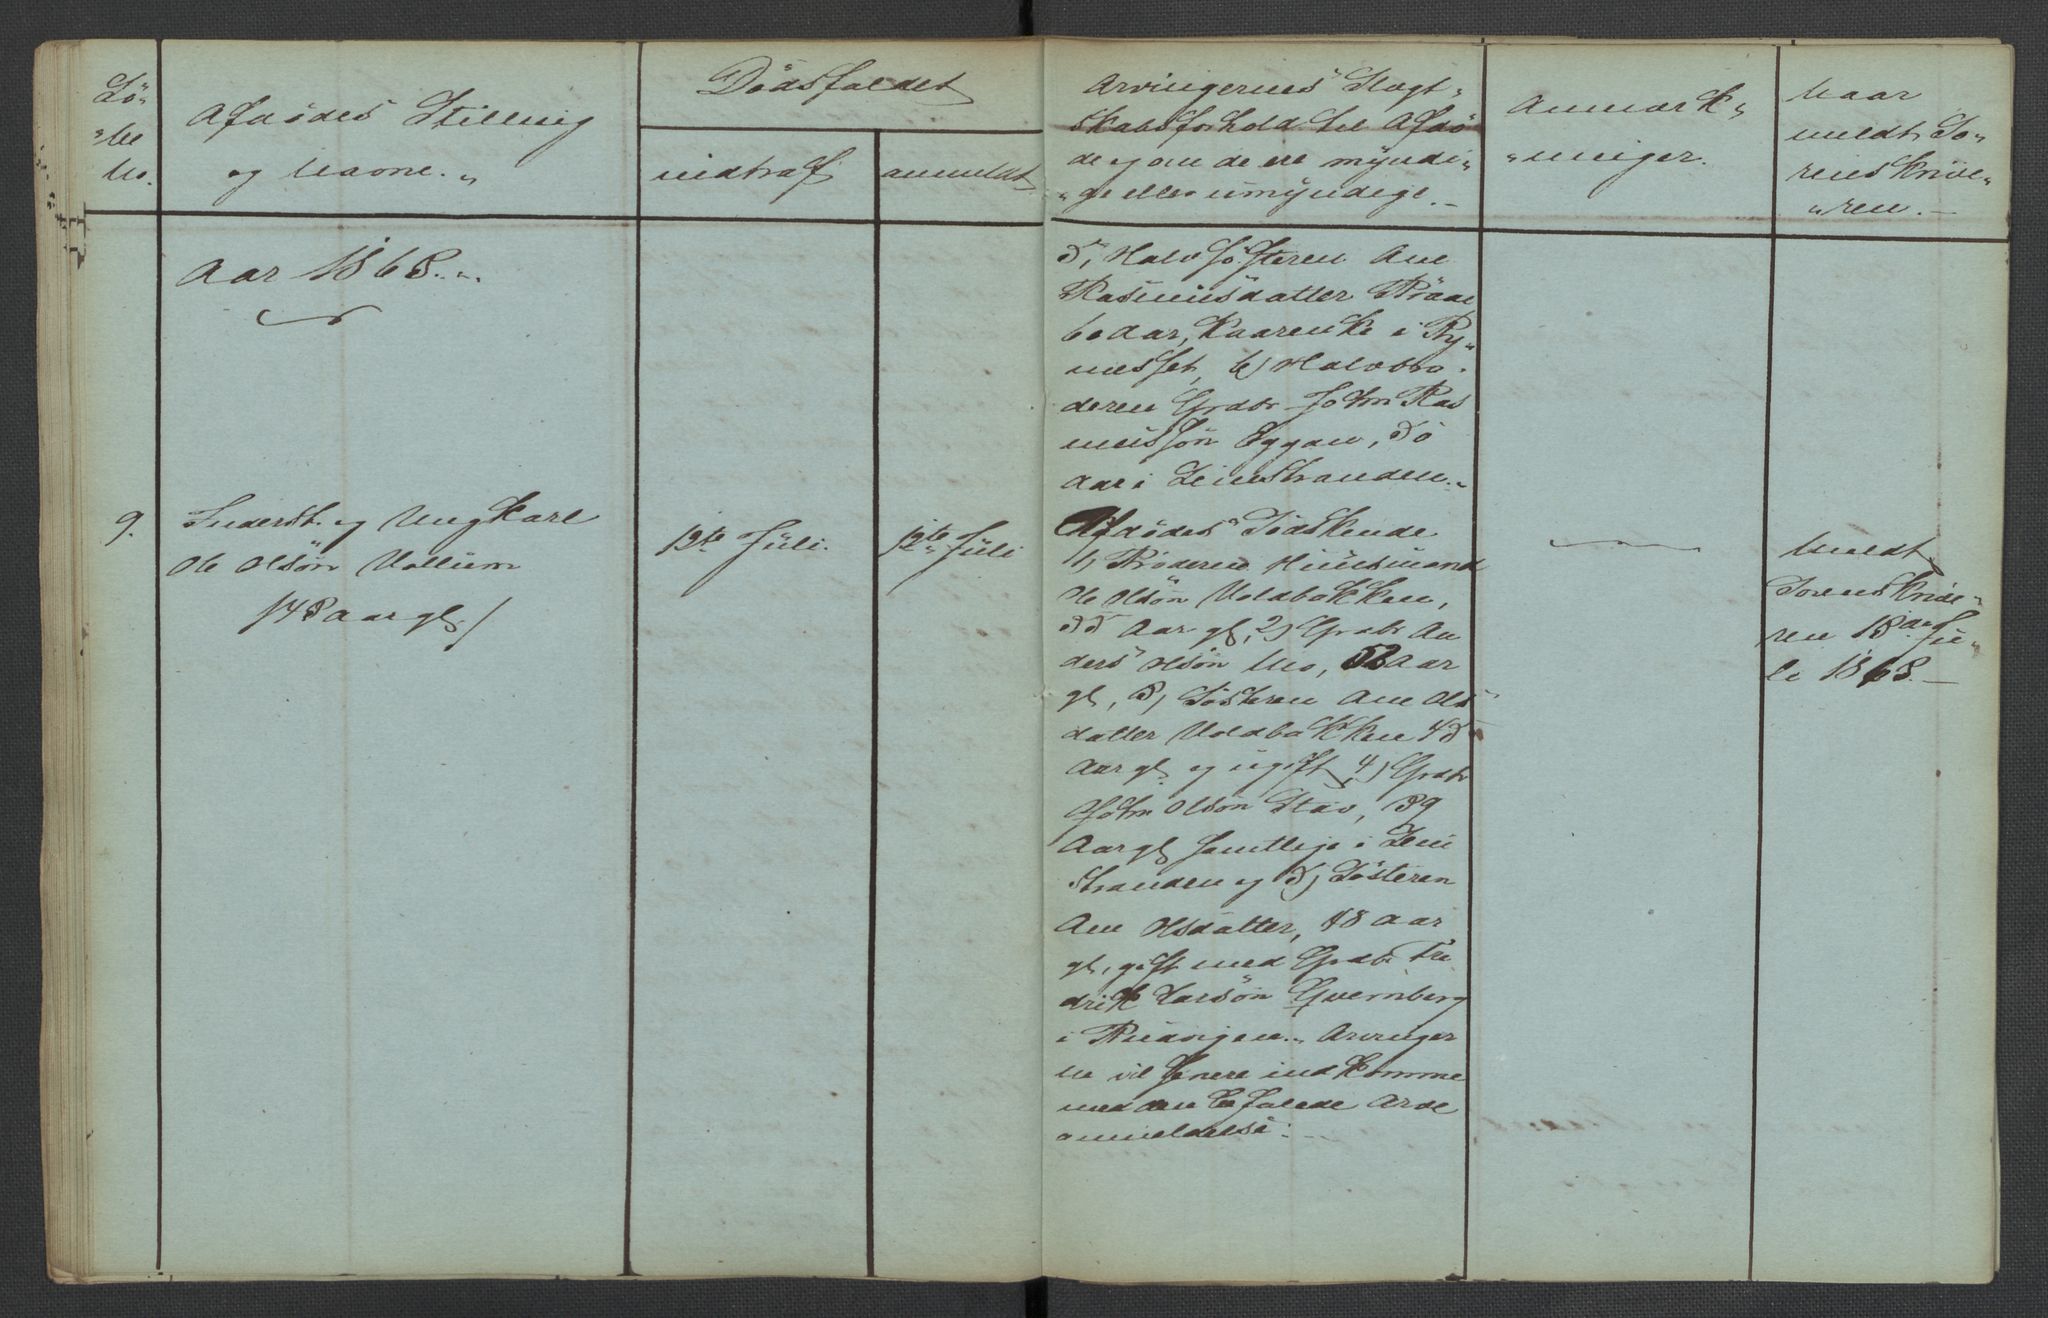 Lö-
"be
No.
Afdödes Stilling
og Navne. "
Dödsfaldet
indtraf
anmeldt
Arvingernes Slægt-
skabsforhold til Afdö
de og om de ere myndi-
"ge eller umyndige. -
Anmærk-
"ninger.
Naar
meldt So-
renskrive-
"ren. -
Aar 1868. "
5, Halvsösteren Ane
Rasmusdatter Braae
60 Aar, Kaarenke i By-
nesset, 6) Halvbro-
deren Grdbr John Ras
mussön Eggan, 50
Aar i Leinstranden. -
9.
Inderst. og Ungkarl
Ole Olsön Vollum
/43 Aar gl/
12te Juli.
12te Juli
Afdödes Södskende
1, Broderen Huusmand
Ole Olsön Voldbakken,
55 Aar gl, 2) Grdbr An
ders Olsön Mo, 52 Aar
gl, 3, Sösteren Ane Ols
datter Voldbakken 45
Aar gl. og ugift, 4) Grdbr
John Olsön Stav, 39
Aar gl samtlige i Lein
stranden og 5) Sösteren
Ane Olsdatter, 48 Aar
gl, gift med Grdbr Fre
drik Larsön Qvernberg
i Budvigen. - Arvinger
ne vil senere indkomme
med den befalede Arve
anmeldelse.
Meldt
Sorenskrive-
ren 18de Ju-
li 1868. -